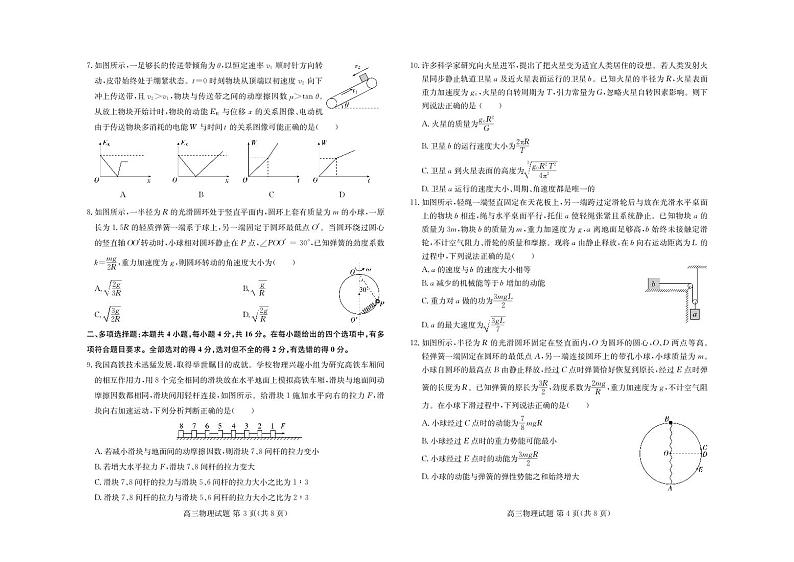 7. 如图所示,一足够长的传送带倾角为 θ,以恒定速率 v₁ 顺时针方向转
动,皮带始终处于绷紧状态。t=0 时刻物块从顶端以初速度 v₂ 向下
冲上传送带,且 v₂>v₁,物块与传送带之间的动摩擦因数 μ>tan θ。
从放上物块开始计时,物块的动能 Eₖ 与位移 x 的关系图像、电动机
由于传送物块多消耗的电能 W 与时间 t 的关系图像可能正确的是(  )
v₂
v₁
θ
Eₖ O x
A
Eₖ O x
B
W O t
C
W O t
D
8. 如图所示,一半径为 R 的光滑圆环处于竖直平面内,圆环上套有质量为 m 的小球,一原
长为 1.5R 的轻质弹簧一端系于球上,另一端固定于圆环最低点 O′。当圆环绕过圆心
的竖直轴 OO′转动时,小球相对圆环静止在 P 点,∠POO′ = 30°,已知弹簧的劲度系数
k=mg/2R,重力加速度为 g,则圆环转动的角速度大小为(  )
A. √(2g/3R)
B. √(g/R)
C. √(3g/2R)
D. √(2g/R)
O ω
30°
P
O′
二、多项选择题:本题共 4 小题,每小题 4 分,共 16 分。在每小题给出的四个选项中,有多
项符合题目要求。全部选对的得 4 分,选对但不全的得 2 分,有选错的得 0 分。
9. 我国高铁技术迅猛发展,取得举世瞩目的成就。学校物理兴趣小组为研究高铁车厢间
的相互作用力,用 8 个完全相同的滑块放在水平地面上模拟高铁车厢,滑块与地面间动
摩擦因数都相同,滑块间用轻杆连接,如图所示。给滑块 1 施加水平向右的拉力 F,滑
块向右加速运动,下列分析判断正确的是(  )
8 7 6 5 4 3 2 1 F
A. 若减小滑块与地面间的动摩擦因数,则滑块 7、8 间杆的拉力变小
B. 若增大水平拉力 F,滑块 7、8 间杆的拉力变大
C. 滑块 7、8 间杆的拉力与滑块 5、6 间杆的拉力大小之比为 1∶3
D. 滑块 7、8 间杆的拉力与滑块 5、6 间杆的拉力大小之比为 2∶3
高三物理试题 第 3 页(共 8 页)
10. 许多科学家研究向火星进军,提出了把火星变为适宜人类居住的设想。若人类发射火
星同步静止轨道卫星 a 及近火星表面运行的卫星 b。已知火星的半径为 R,火星表面
重力加速度为 g₀,火星的自转周期为 T,引力常量为 G,忽略火星自转因素影响。则下
列说法正确的是(  )
A. 火星的质量为 g₀R²/G
B. 卫星 b 的运行速度大小为 2πR/T
C. 卫星 a 到火星表面的高度为 ∛(g₀R²T²/4π²)
D. 卫星 a 运行的速度大小、周期、角速度都是唯一的
11. 如图所示,轻绳一端竖直固定在天花板上,另一端跨过定滑轮后与放在光滑水平桌面
上的物块 b 相连,绳与水平桌面平行,托住 a 使轻绳张紧且系统静止。已知物块 a 的
质量为 3m,物块 b 的质量为 m,重力加速度为 g,a 离地面足够高,b 始终未接触定滑
轮,不计空气阻力、滑轮的质量和摩擦。现将 a 由静止释放,在 b 向右运动距离为 L 的
过程中,下列说法正确的是(  )
A. a 的速度与 b 的速度大小相等
B. a 减少的机械能等于 b 增加的动能
C. 重力对 a 做的功为 3mgL/2
D. a 的最大速度为 √(3gL/7)
b
a
12. 如图所示,半径为 R 的光滑圆固定在竖直面内,O 为圆环的圆心,O、D 两点等高。
轻弹簧一端固定在圆环的最低点 A,另一端连接圆环上的带孔小球,小球质量为 m。
小球自圆环的最高点 B 由静止释放,经过 C 点时弹簧恰好恢复到原长,经过 E 点时弹
簧的长度为 R。已知弹簧的原长为 3R/2,劲度系数为 2mg/R,重力加速度为 g,不计空气阻
力。在小球下滑过程中,下列说法正确的是(  )
A. 小球经过 C 点时的动能为 7/8 mgR
B. 小球经过 E 点时的重力势能可能最小
C. 小球经过 E 点时的动能为 3mgR/2
D. 小球的动能与弹簧的弹性势能之和始终增大
B
O
C
D
E
A
高三物理试题 第 4 页(共 8 页)